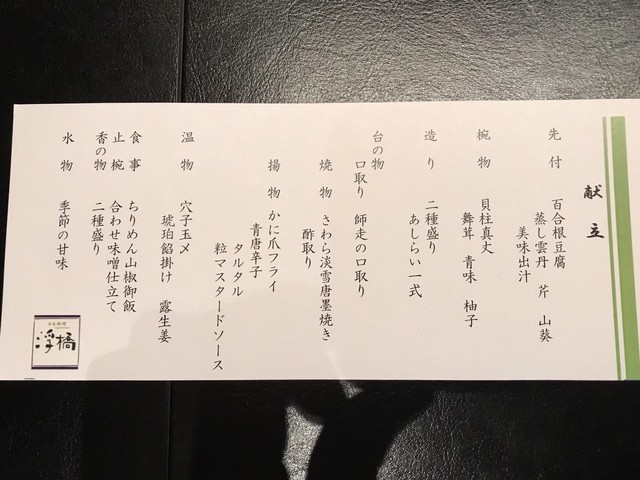 献立
先付 百合根豆腐
蒸し雲丹 芹 山葵
美味出汁
椀物 貝柱真丈
舞茸 青味 柚子
造り 二種盛り
あしらい一式
台の物
口取り 師走の口取り
焼物 さわら淡雪唐墨焼き
酢取り
揚物 かに爪フライ
青唐辛子
タルタル
粒マスタードソース
温物 穴子玉〆
琥珀餡掛け 露生姜
食事 ちりめん山椒御飯
止椀 合わせ味噌仕立て
香の物 二種盛り
水物 季節の甘味
浮橋